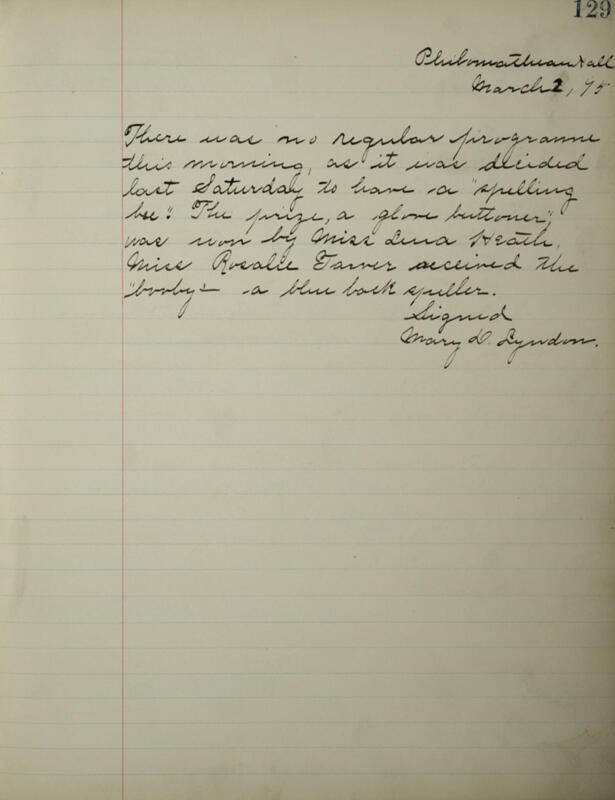 129
Philomathean Hall
March 2, 95
There was no regular programme
this morning, as it was decided
last Saturday to have a "spelling
bee". The prize, a glove buttoner,
was won by Miss Lena Heath.
Miss Rosalie Tarver received the
"booby" – a blue back speller.
Signed
Mary D. Lyndon.